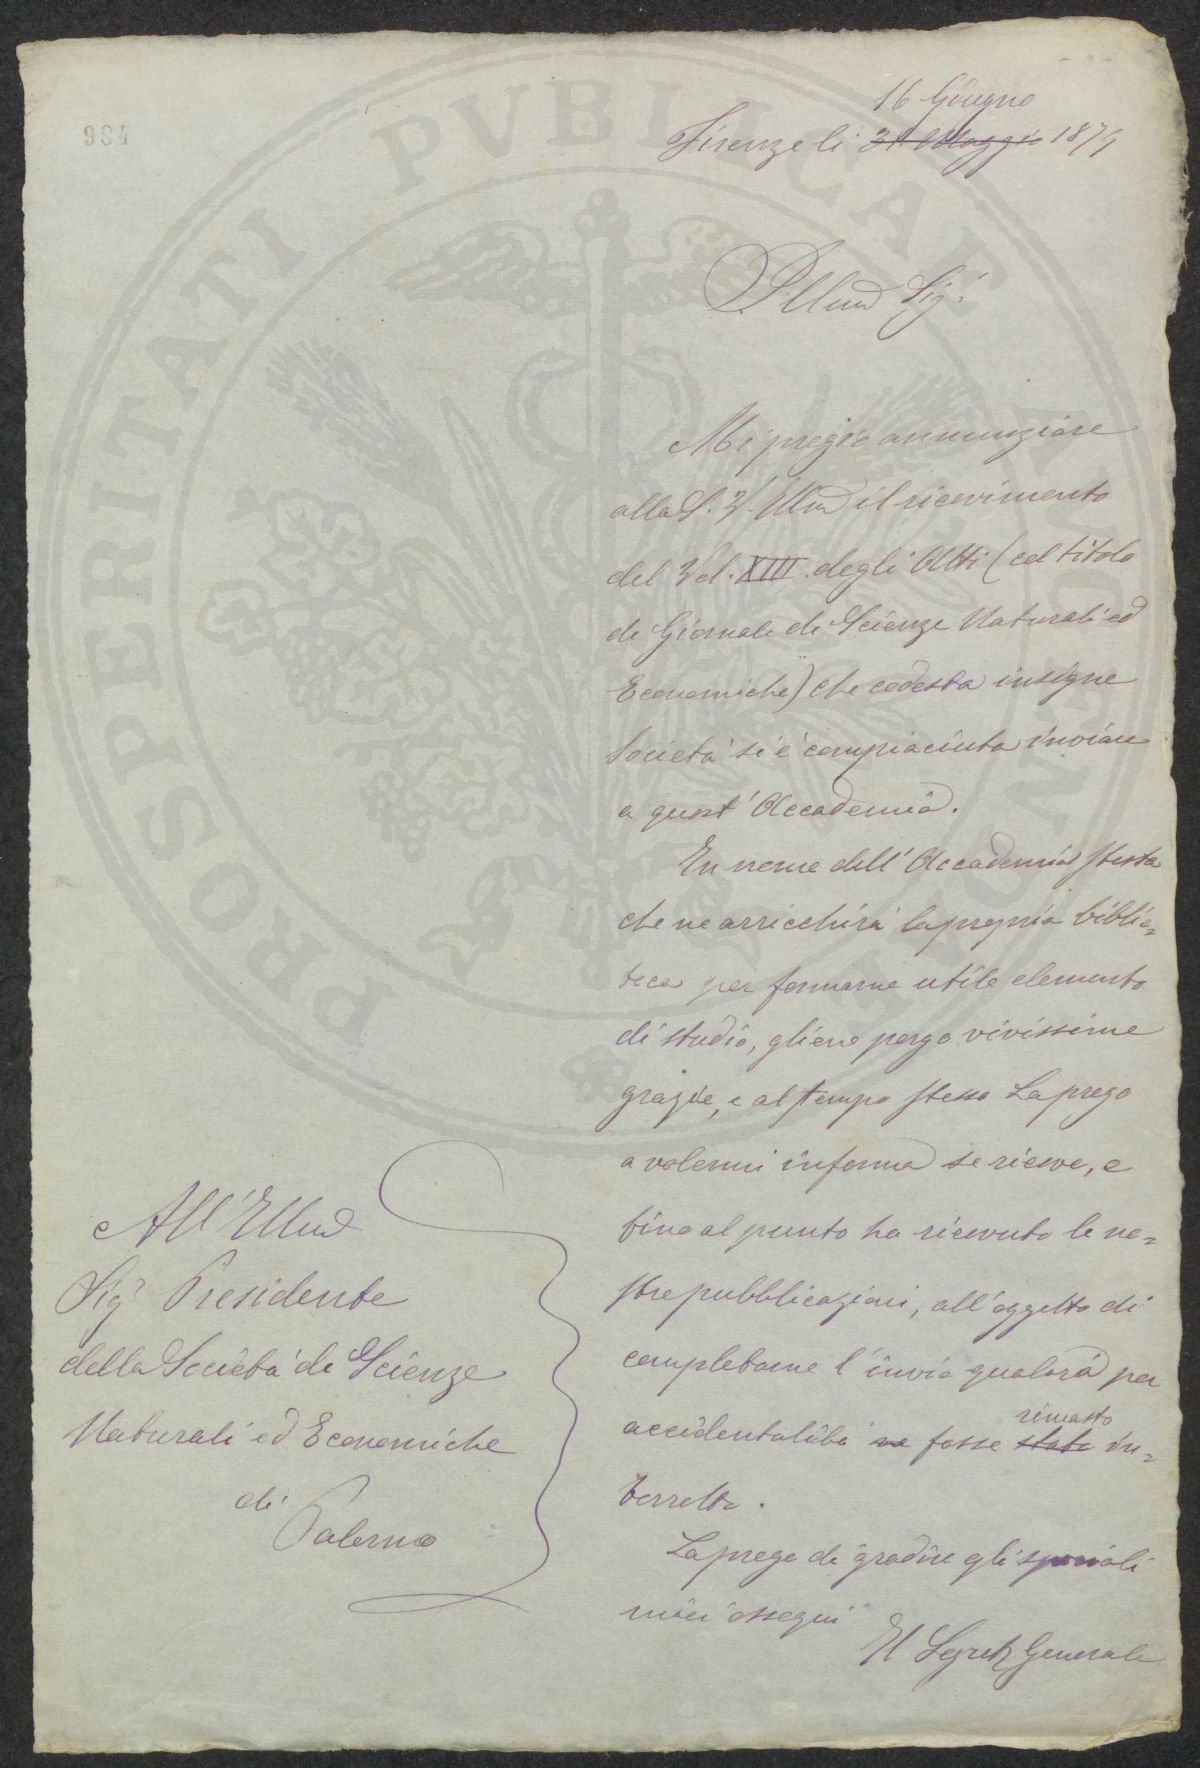 934
16 Giugno
Firenze li 31 Maggio 1879
Illmo Sig.r
Mi pregio annunziare
alla S. V. Illma il ricevimento
del Vol. XIII degli Atti (col titolo
di Giornale di Scienze Naturali ed
Economiche) che codesta insigne
Società si è compiaciuta inviare
a quest' Accademia.
In nome dell' Accademia stessa
che ne arricchirà la propria biblio=
teca per formarne utile elemento
di studio, gliene porgo vivissime
grazie, e al tempo stesso La prego
a volermi informa se riceve, e
fino al punto ha ricevuto le no=
stre pubblicazioni, all'oggetto di
completarne l'invio qualora per
rimasto
accidentalità ne fosse stato in=
terrotto.
La prego di gradire gli speciali
miei ossequi
Il Segret Generale
All' Illmo
Sig.r Presidente
della Società di Scienze
Naturali ed Economiche
di
Palermo
PROSPERITATI PVBLICAE AVGENDAE